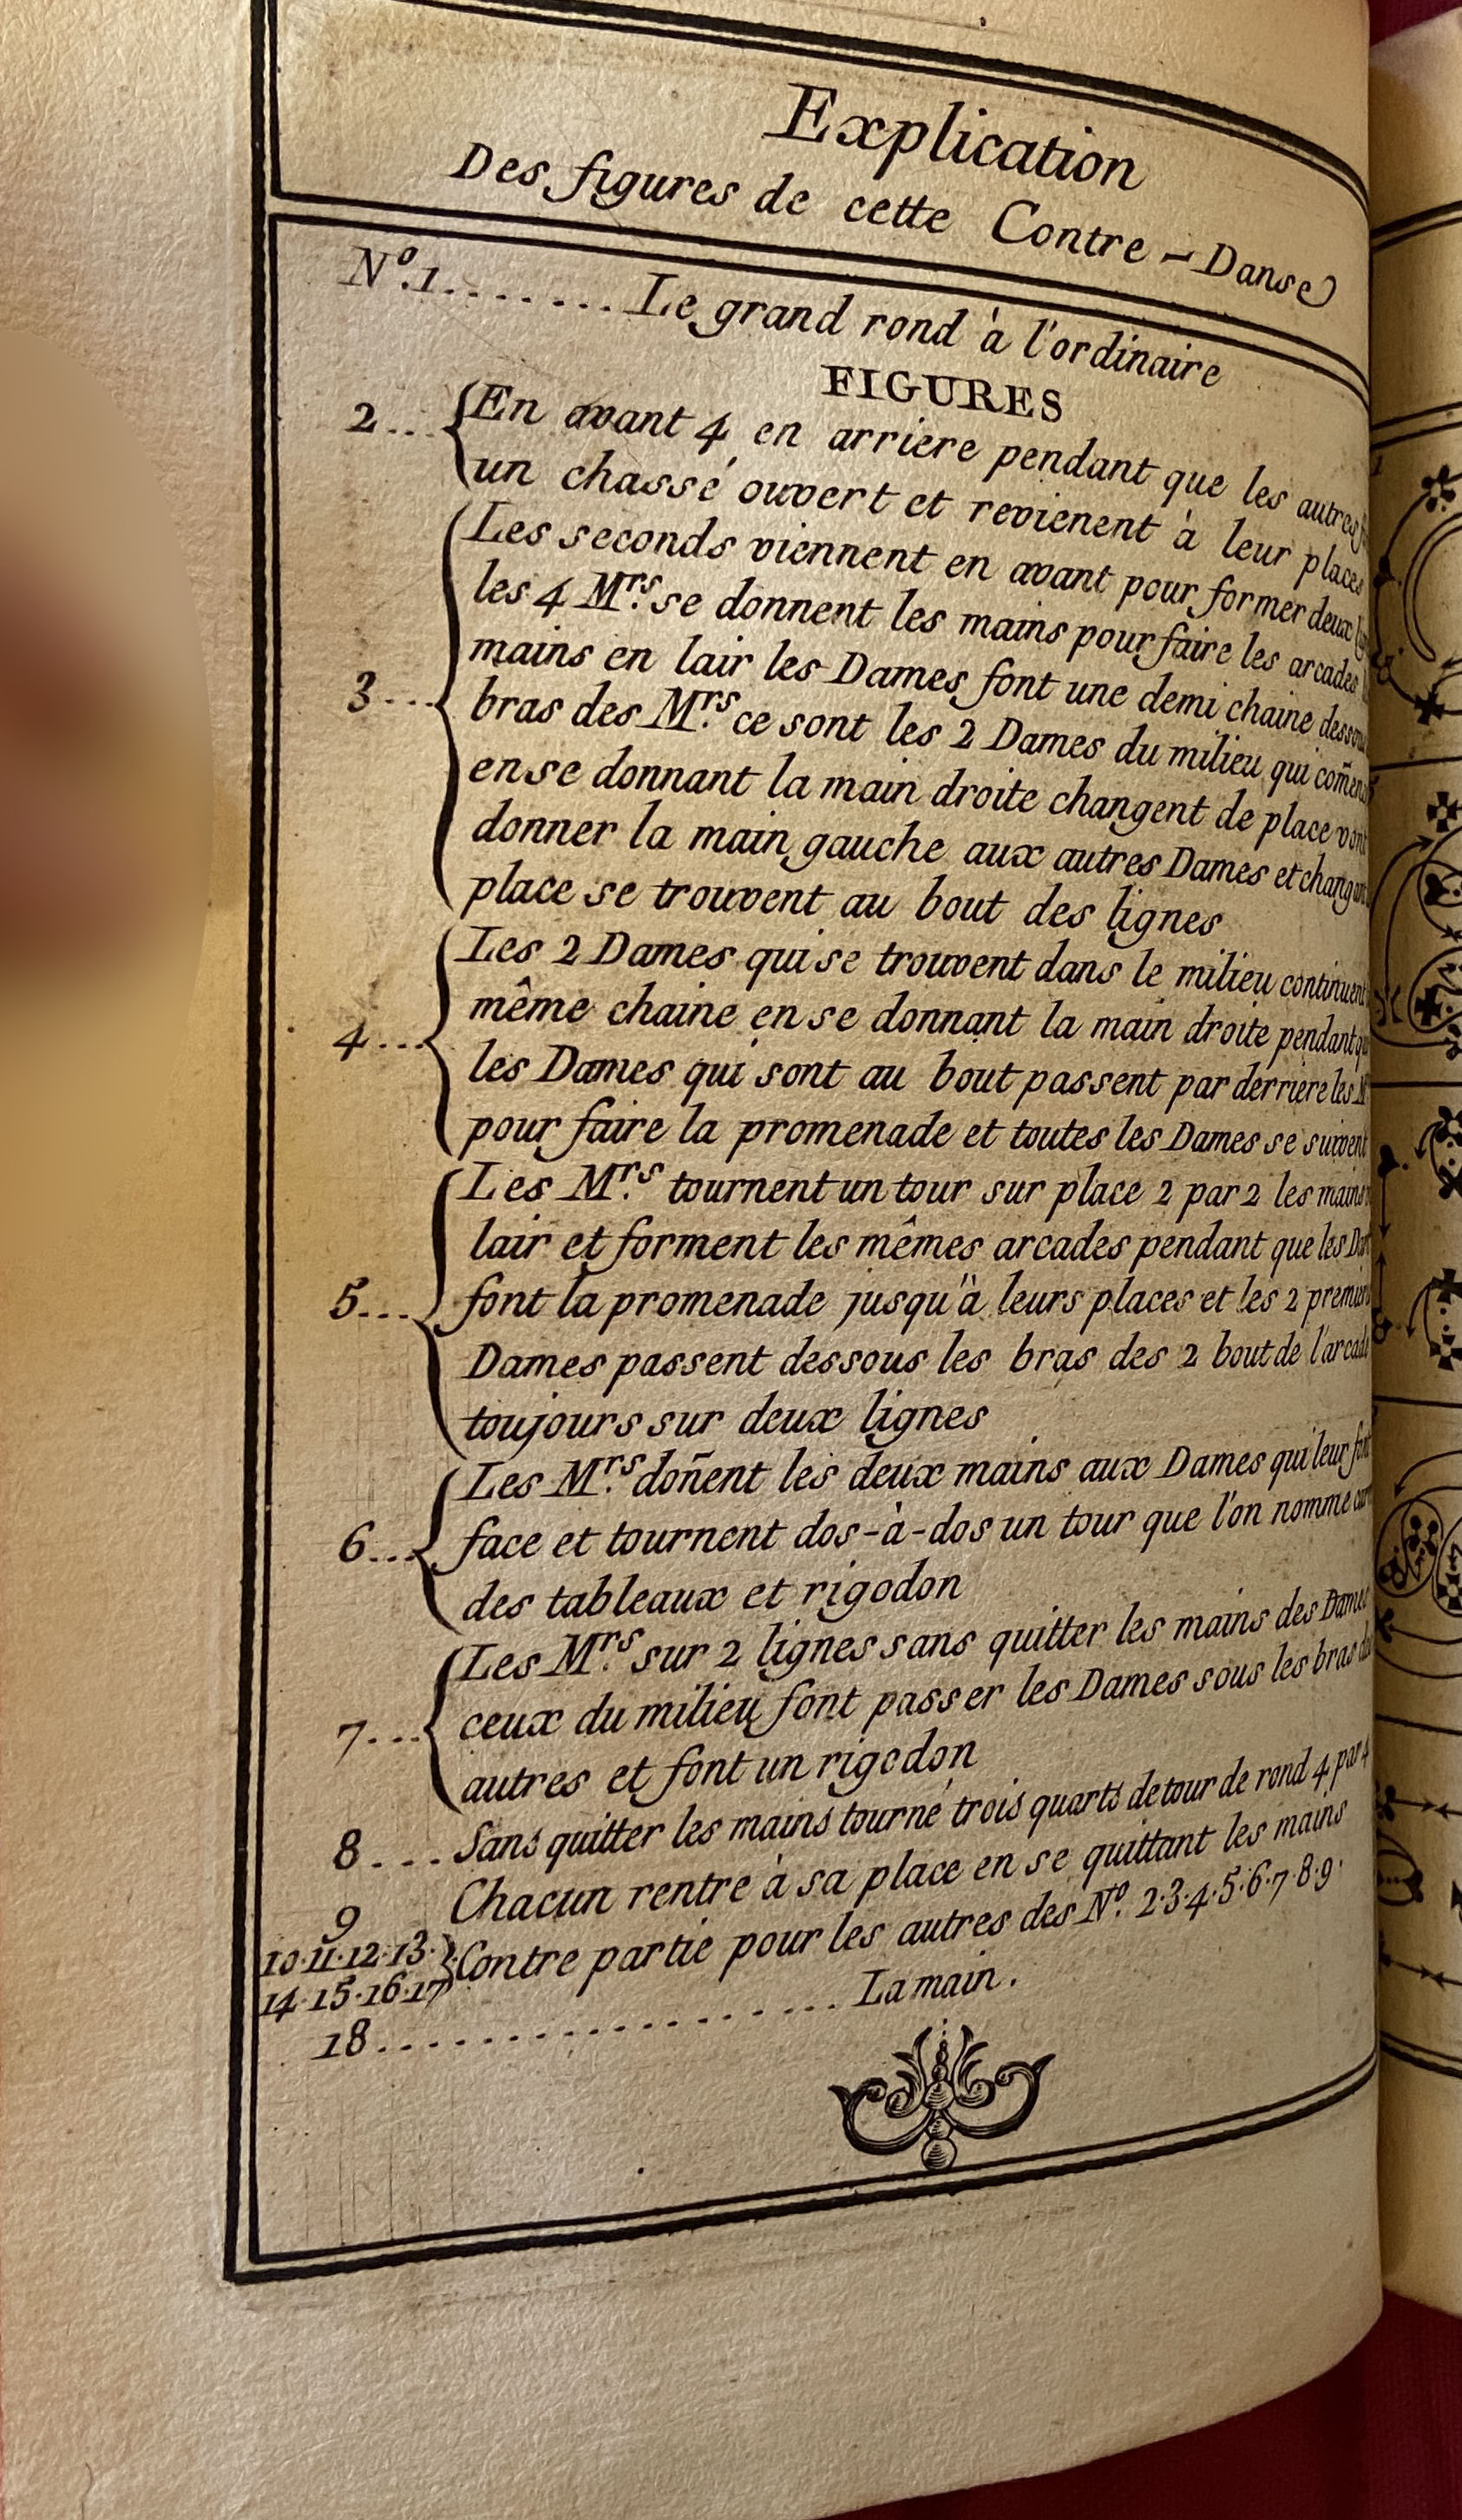 Explication
Des figures de cette Contre-Danse
N.º 1........Le grand rond à l'ordinaire
FIGURES
2... En avant 4 en arriere pendant que les autres
un chassé ouvert et revienent à leur places
Les seconds viennent en avant pour former deux
les 4 M.rs se donnent les mains pour faire les arcades
mains en lair les Dames font une demi chaine
3... bras des M.rs ce sont les 2 Dames du milieu qui
en se donnant la main droite changent de place
donner la main gauche aux autres Dames et
place se trouvent au bout des lignes
Les 2 Dames qui se trouvent dans le milieu continuent
même chaine en se donnant la main droite pendant
4... les Dames qui sont au bout passent par derriere les
pour faire la promenade et toutes les Dames se suivent
Les M.rs tournent un tour sur place 2 par 2 les mains
lair et forment les mêmes arcades pendant que les
5... font la promenade jusqu'à leurs places et les 2
Dames passent dessous les bras des 2 bout de
toujours sur deux lignes
Les M.rs doñent les deux mains aux Dames qui leur font
6... face et tournent dos-à-dos un tour que l'on nomme
des tableaux et rigodon
Les M.rs sur 2 lignes sans quitter les mains des Dames
7... ceux du milieu font passer les Dames sous les bras
autres et font un rigodon
8... Sans quitter les mains tourné trois quarts de tour de rond 4 par 4
9 Chacun rentre à sa place en se quittant les mains
10.11.12.13. Contre partie pour les autres des N.º 2.3.4.5.6.7.8.9.
14.15.16.17
18.................... La main.